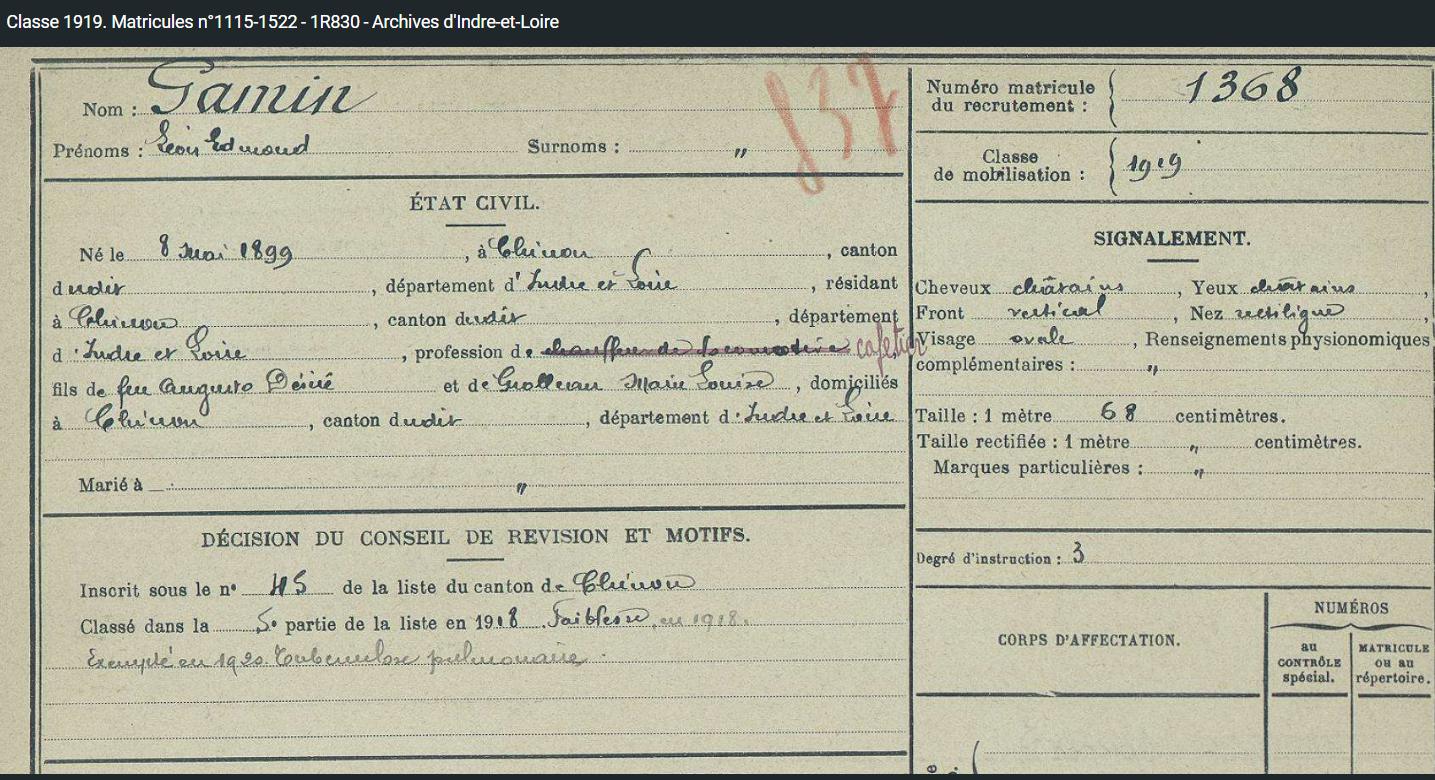 Classe 1919. Matricules n°1115-1522 - 1R830 - Archives d'Indre-et-Loire
Nom : Gamin
837
Prénoms : Léon Edmond Surnoms : "
ÉTAT CIVIL.
Né le 8 mai 1899, à Chinon, canton
dudit, département d'Indre et Loire, résidant
à Chinon, canton dudit, département
d'Indre et Loire, profession de chauffeur de locomotive cafetier
fils de feu Auguste Désiré et de Marie Louise, domiciliés
à Chinon, canton dudit, département d'Indre et Loire
Marié à "
DÉCISION DU CONSEIL DE REVISION ET MOTIFS.
Inscrit sous le n° 45 de la liste du canton de Chinon
Classé dans la 5e partie de la liste en 1918 Faiblesse, en 1918.
Exempté en 1920. Tuberculose pulmonaire.
Numéro matricule
du recrutement : 1368
Classe
de mobilisation : 1919
SIGNALEMENT.
Cheveux châtains, Yeux châtains,
Front vertical, Nez rectiligne,
Visage ovale, Renseignements physionomiques
complémentaires : "
Taille : 1 mètre 68 centimètres.
Taille rectifiée : 1 mètre " centimètres.
Marques particulières : "
Degré d'instruction : 3
CORPS D'AFFECTATION.
NUMÉROS
au
CONTRÔLE
spécial.
MATRICULE
ou au
répertoire.